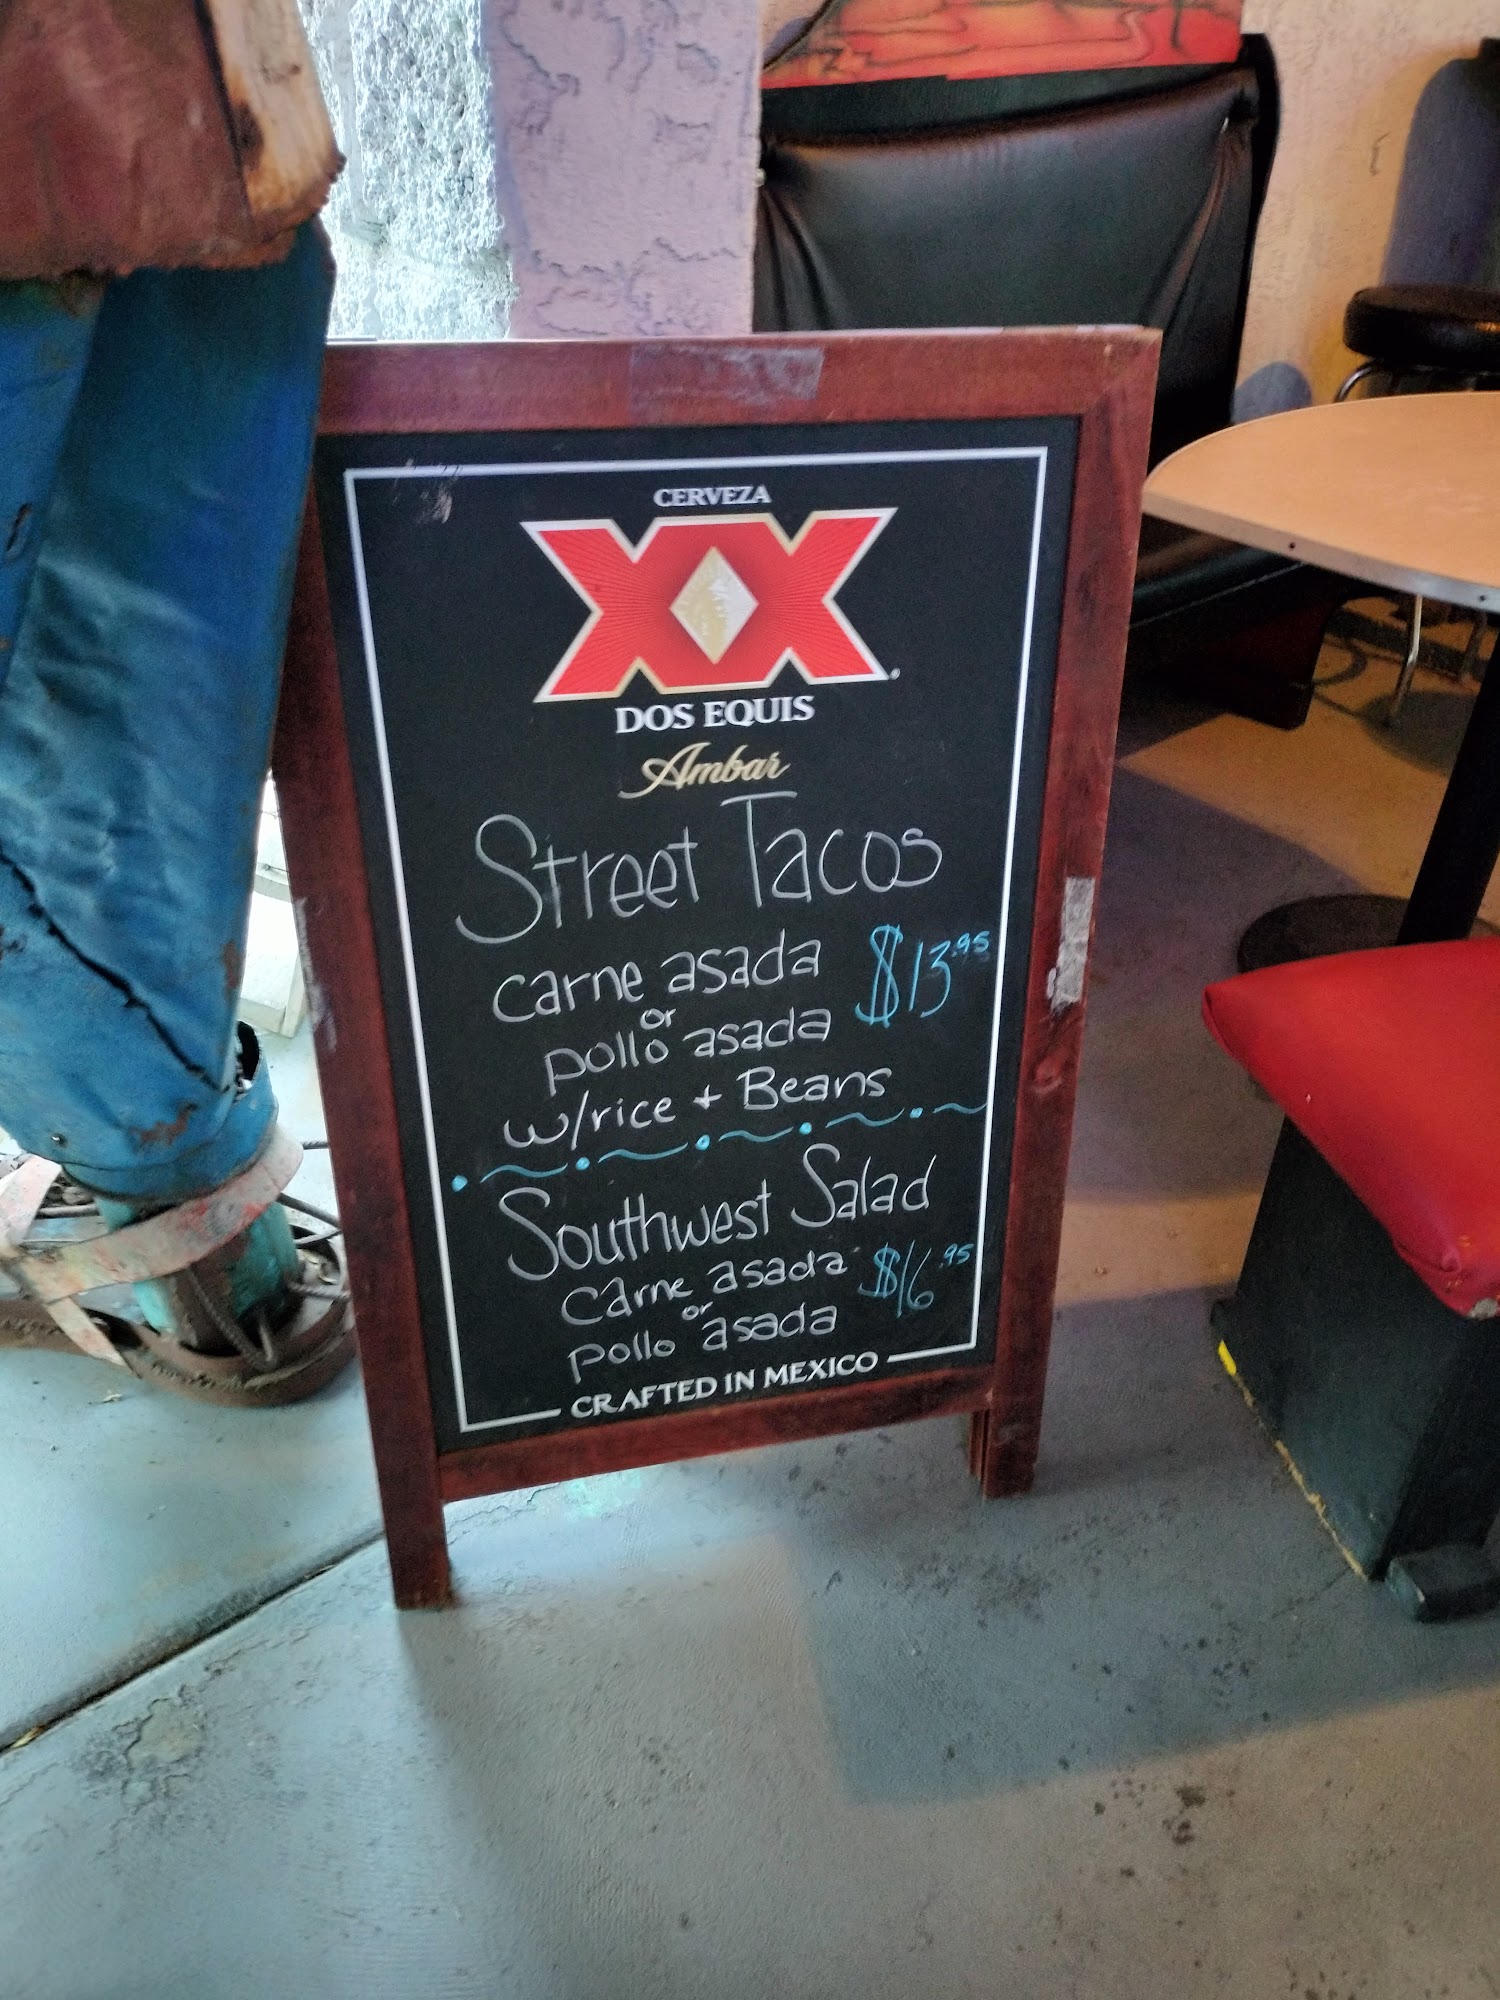 CERVEZA
XX
DOS EQUIS
Ambar
Street Tacos
carne asada $13.95
or
pollo asada
w/rice + Beans
Southwest Salad
carne asada $16.95
or
pollo asada
CRAFTED IN MEXICO